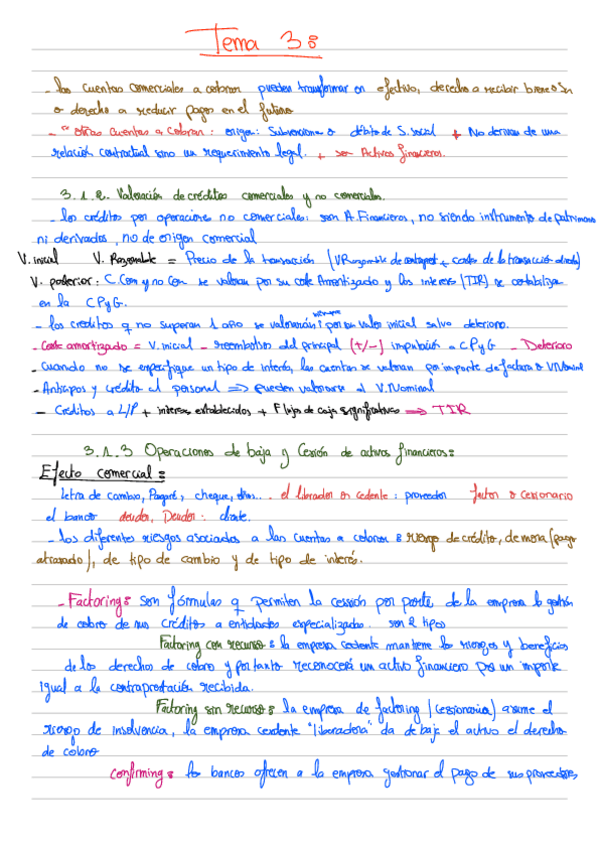 Tema 3:
- las cuentas comerciales a cobrar pueden transformar en efectivo, derecho a recibir bienes o Sv
o derecho a reducir pagos en el futuro
- "otras cuentas a cobrar: origen: Subvenciones o débito de S. social + No derivan de una
relación contractual sino un requerimiento legal. + son Activos financieros.
3.1.2. Valoración de créditos comerciales y no comerciales.
- los créditos por operaciones no comerciales: son A. Financieros, no siendo instrumento de patrimonio
ni derivados, no de origen comercial
V. inicial V. Razonable = Precio de la transacción (VRazonable de + costes de la transacción directa)
V. posterior: C. Com y no Com se valoran por su coste Amortizado y los interes (TIR) se contabiliza
en la CPyG.
- los creditos q no superan 1 año se valorarán por su valor inicial salvo deterioro.
- Coste amortizado = V. inicial - reembolsos del principal (+/-) imputación a CPyG - Deterioro
- cuando no se especifique un tipo de interés, las cuentas se valoran por importe de factura o VNominal
- Anticipos y crédito al personal => pueden valorarse al V. Nominal
- Créditos a L/P + interes establecidos + Flujos de caja significativos => TIR
3.1.3 Operaciones de baja y Cesión de activos financieros:
Efecto comercial:
Letra de cambio, Pagaré, cheque, otros... el librador o cedente: proveedor factor o cesionario
el banco deudor, Deudor: cliente.
- los diferentes riesgos asociados a las cuentas a cobrar: riesgo de crédito, de mora (pago
atrasado), de tipo de cambio y de tipo de interés.
- Factoring: son fórmulas q permiten la cesión por parte de la empresa la gestión
de cobro de sus créditos a entidades especializadas. son 2 tipos
Factoring con recurso: la empresa cedente mantiene los riesgos y beneficios
de los derecho de cobro y por tanto reconocerá un activo financiero por un importe
igual a la contraprestación recibida.
Factoring sin recurso: la empresa de factoring (cesionaria) asume el
riesgo de insolvencia, la empresa cedente "liberadora" da de baja el activo el derecho
de cobro
confirming: los bancos ofrecen a la empresa gestionar el pago de sus proveedores,